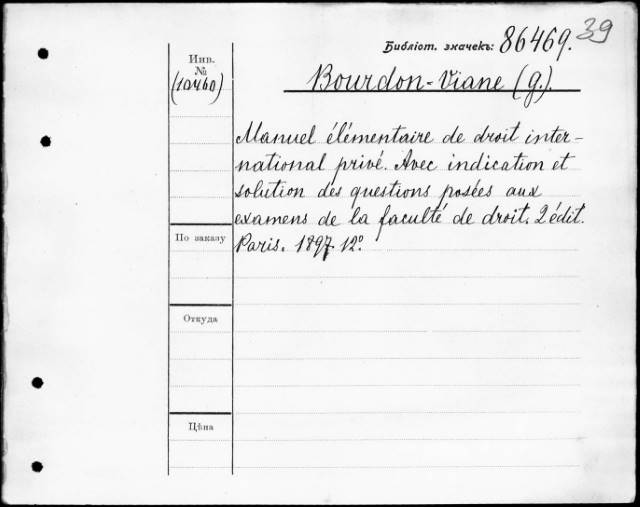 39
Библіот. значекъ: 86469.
Инв.
№
(10460)
Bourdon-Viane (G.).
Manuel élémentaire de droit inter-
national privé. Avec indication et
solution des questions posées aux
examens de la faculté de droit. 2 édit.
Paris. 1897. 12º.
По заказу
Откуда
Цѣна